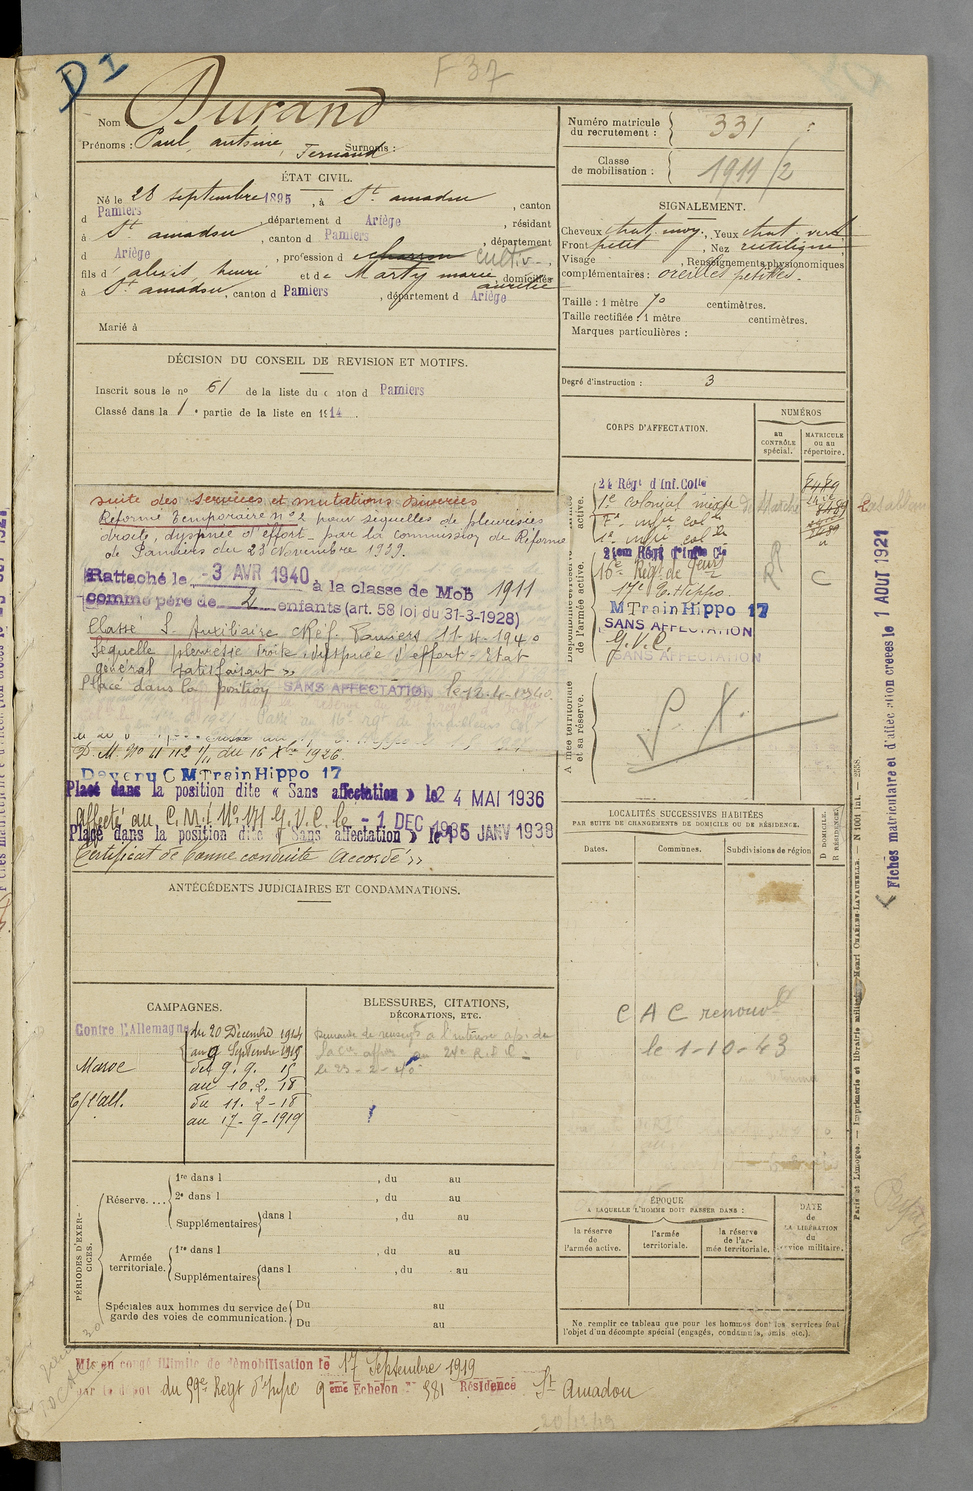 D I
F 37
Nom : Durand
Prénoms : Paul, antoine, Fernand Surnoms :
ÉTAT CIVIL.
Né le 28 septembre 1895, à St. amadou, canton
d Pamiers, département d Ariège, résidant
à St amadou, canton d Pamiers, département
d Ariège, profession d cultiv.
fils d' alexis henri et de Marty marie aurélie, domiciliés
à St amadou, canton d Pamiers, département d Ariège
Marié à
DÉCISION DU CONSEIL DE REVISION ET MOTIFS.
Inscrit sous le no 61 de la liste du canton d Pamiers
Classé dans la 1e partie de la liste en 1914.
suite des services et mutations diverses
Réformé temporaire no 2 pour sequelles de pleurésies
droite, dyspnée d'effort - par la commission de Réforme
de Pamiers du 28 Novembre 1929.
Rattaché le 3 AVR 1940 à la classe de Mob 1911
comme père de 2 enfants (art. 58 loi du 31-3-1928)
Classé S. Auxiliaire cRéf. Pamiers 11-4-1940
Sequelle pleuresie droite, dyspnée d'effort - Etat
général satisfaisant »
Placé dans la position SANS AFFECTATION le 12-4-1940.
D.M. No 4112 1/11 du 16 Xbre 1926.
Devenu C M Train Hippo 17
Placé dans la position dite « Sans affectation » le 24 MAI 1936
affecté au C.M.I. No 171 G.V.C. le - 1 DEC 1936
Placé dans la position dite « Sans affectation » le 15 JANV 1938
Certificat de bonne conduite "Accordé"
ANTÉCÉDENTS JUDICIAIRES ET CONDAMNATIONS.
CAMPAGNES.
Contre l'Allemagne du 20 Décembre 1914
au 9 Septembre 1915
Maroc du 9. 9. 15
au 10. 2. 18
C/ l'all. du 11. 2 - 18
au 17 - 9 - 1919
BLESSURES, CITATIONS,
DÉCORATIONS, ETC.
le 23 - 2 - 40
PÉRIODES D'EXERCICES.
Réserve....
1re dans l , du au
2e dans l , du au
Supplémentaires dans l , du au
Armée territoriale.
1re dans l , du au
Supplémentaires dans l , du au
Spéciales aux hommes du service de garde des voies de communication.
Du au
Du au
Mis en congé illimité de démobilisation le 17 Septembre 1919
par le dépôt du 59e Regt d'Infie 9ème Echelon no 381 Résidence St Amadou
20/12/49
Numéro matricule
du recrutement : 331
Classe
de mobilisation : 1911/2
SIGNALEMENT.
Cheveux chat. moy., Yeux chat. vert
Front petit, Nez rectiligne
Visage , Renseignements physionomiques
complémentaires : oreilles petites.
Taille : 1 mètre 70 centimètres.
Taille rectifiée : 1 mètre centimètres.
Marques particulières :
Degré d'instruction : 3
CORPS D'AFFECTATION.
NUMÉROS
au
CONTRÔLE
spécial.
MATRICULE
ou au
répertoire.
Disponibilité et réserve de l'armée active.
24 Régt d Inf. Colle
1e colonial mixte de Marche Casablanca
7e infie colle
1e infie colle
21em Régt d'Infie Cle
16e Rég.
17e E. Hippo.
M Train Hippo 17
SANS AFFECTATION
G.V.C.
SANS AFFECTATION
C
Armée territoriale
et sa réserve.
S. X.
LOCALITÉS SUCCESSIVES HABITÉES
PAR SUITE DE CHANGEMENTS DE DOMICILE OU DE RÉSIDENCE.
Dates.
Communes.
Subdivisions de région
D DOMICILE.
R RÉSIDENCE.
C A C renouvlé
le 1-10-43
ÉPOQUE
A LAQUELLE L'HOMME DOIT PASSER DANS :
DATE
de
LA LIBÉRATION
du
service militaire.
la réserve
de
l'armée active.
l'armée
territoriale.
la réserve
de l'armée territoriale.
Ne remplir ce tableau que pour les hommes dont les services font
l'objet d'un décompte spécial (engagés, condamnés, omis etc.).
Paris et Limoges. — Imprimerie et librairie militaires Henri CHARLES-LAVAUZELLE. — N 1001 Int. - 2558.
Fiches matriculaire et d'affectation créées le 1 AOUT 1921